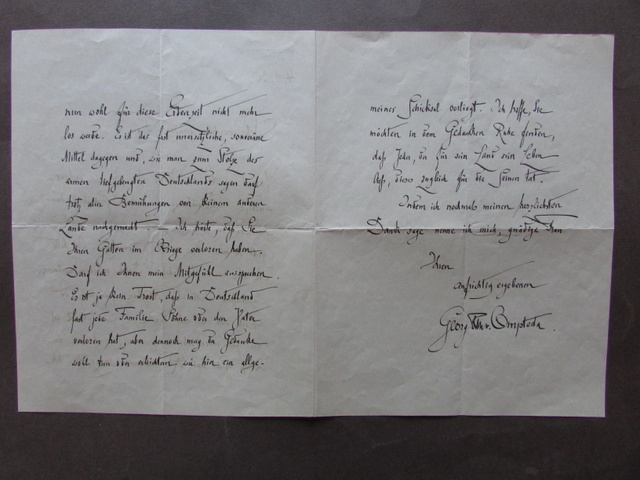 nun wohl für diese Erdenzeit nicht mehr
los werde. Es ist das fast unersetzliche, souveräne
Mittel dagegen und, wie man zum Stolze des
armen tiefgebeugten Deutschlands sagen darf
trotz allen Bemühungen von keinem anderen
Lande nachgemacht. — Ich hörte, daß Sie
Ihren Gatten im Kriege verloren haben.
Darf ich Ihnen mein Mitgefühl aussprechen.
Es ist ja kein Trost, daß in Deutschland
fast jede Familie Söhne oder den Vater
verloren hat, aber dennoch mag der Gedanke
wohl den oder erleichtern wie hier ein allge-
meines Schicksal vorliegt. Ich hoffe, Sie
möchten in dem Gedanken Ruhe finden,
daß Jeder, der für sein Land sein Leben
ließ, dieses zugleich für die Seinen tat.
Indem ich nochmals meinen herzlichsten
Dank sage nenne ich mich, gnädige Frau
Ihren
aufrichtig ergebenen
Georg v. Ompteda.